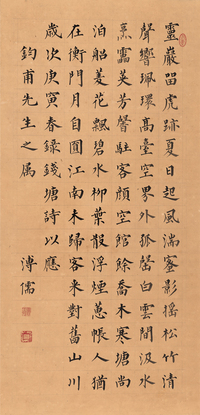 靈巖留虎跡夏日起風湍密影搖松竹清
聲響珮環高臺空界外孤磬白雲間汲水
烹靈英芳馨駐客顏空館餘喬木寒塘尚
泊船菱花飄碧水柳葉散浮煙蕙帳人猶
在衡門月自圓江南未歸客來對舊山川
歲次庚寅春錄錢塘詩以應
鈞甫先生之屬
溥儒